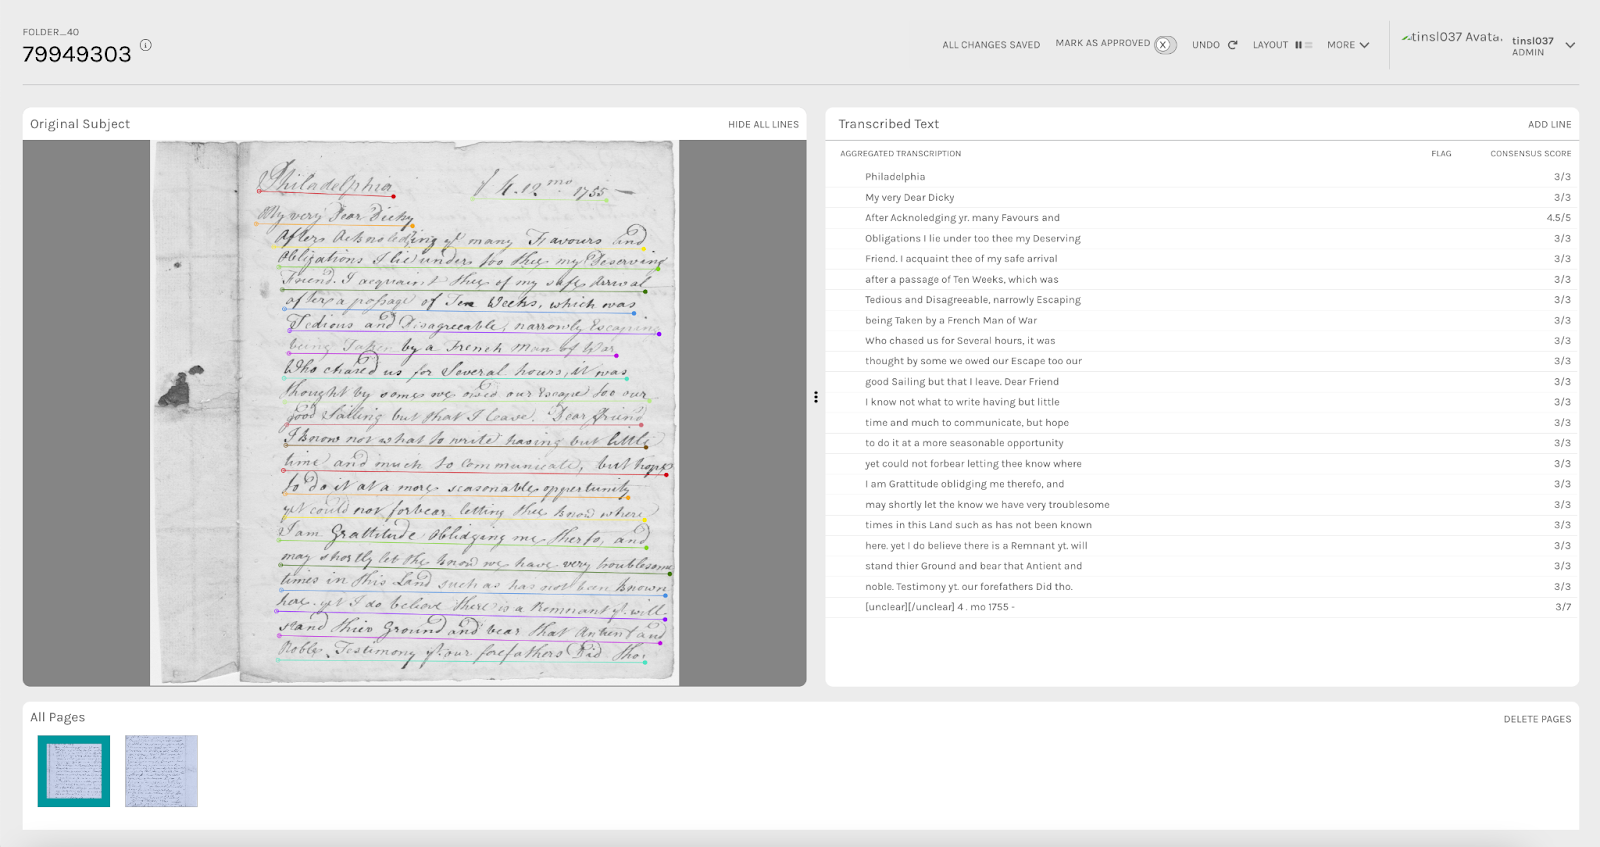 FOLDER_40
79949303
ALL CHANGES SAVED
MARK AS APPROVED
UNDO
LAYOUT
MORE
tinsl037 Avata
tinsl037
ADMIN
Original Subject
HIDE ALL LINES
Philadelphia
4. 12 mo 1755 —
My very Dear Dicky
After Acknoledging yr many Favours and
Obligations I lie under too thee my Deserving
Friend. I acquaint thee of my safe Arrival
after a passage of Ten Weeks, which was
Tedious and Disagreeable, narrowly Escaping
being Taken by a French Man of War
Who chased us for Several hours, it was
thought by some we owed our Escape too our
good Sailing but that I leave. Dear friend
I know not what to write having but little
time and much to communicate, but hope
to do it at a more seasonable opportunity
yet could not forbear letting thee know where
I am Grattitude oblidging me therfo, and
may shortly let the know we have very troublesome
times in this Land such as has not been known
here. yet I do believe there is a Remnant yt. will
stand thier Ground and bear that Antient and
Noble. Testimony yt. our forefathers Did tho.
Transcribed Text
ADD LINE
AGGREGATED TRANSCRIPTION FLAG CONSENSUS SCORE
Philadelphia 3/3
My very Dear Dicky 3/3
After Acknoledging yr. many Favours and 4.5/5
Obligations I lie under too thee my Deserving 3/3
Friend. I acquaint thee of my safe arrival 3/3
after a passage of Ten Weeks, which was 3/3
Tedious and Disagreeable, narrowly Escaping 3/3
being Taken by a French Man of War 3/3
Who chased us for Several hours, it was 3/3
thought by some we owed our Escape too our 3/3
good Sailing but that I leave. Dear Friend 3/3
I know not what to write having but little 3/3
time and much to communicate, but hope 3/3
to do it at a more seasonable opportunity 3/3
yet could not forbear letting thee know where 3/3
I am Grattitude oblidging me therefo, and 3/3
may shortly let the know we have very troublesome 3/3
times in this Land such as has not been known 3/3
here. yet I do believe there is a Remnant yt. will 3/3
stand thier Ground and bear that Antient and 3/3
noble. Testimony yt. our forefathers Did tho. 3/3
[unclear][/unclear] 4 . mo 1755 - 3/7
All Pages
DELETE PAGES